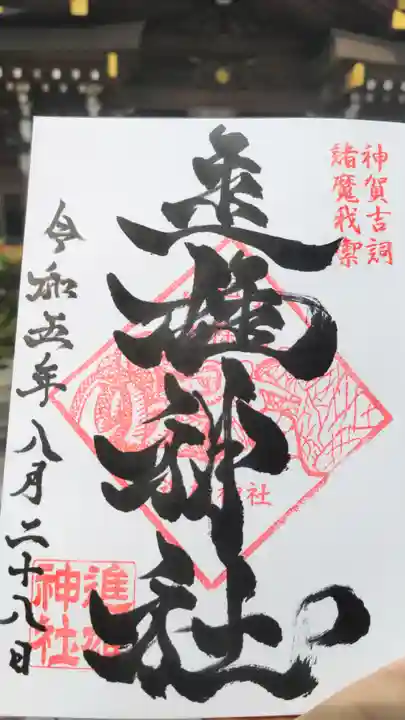 神賀吉詞
諸魔我禦
進雄神社
神社
令和五年八月二十八日
進雄
神社